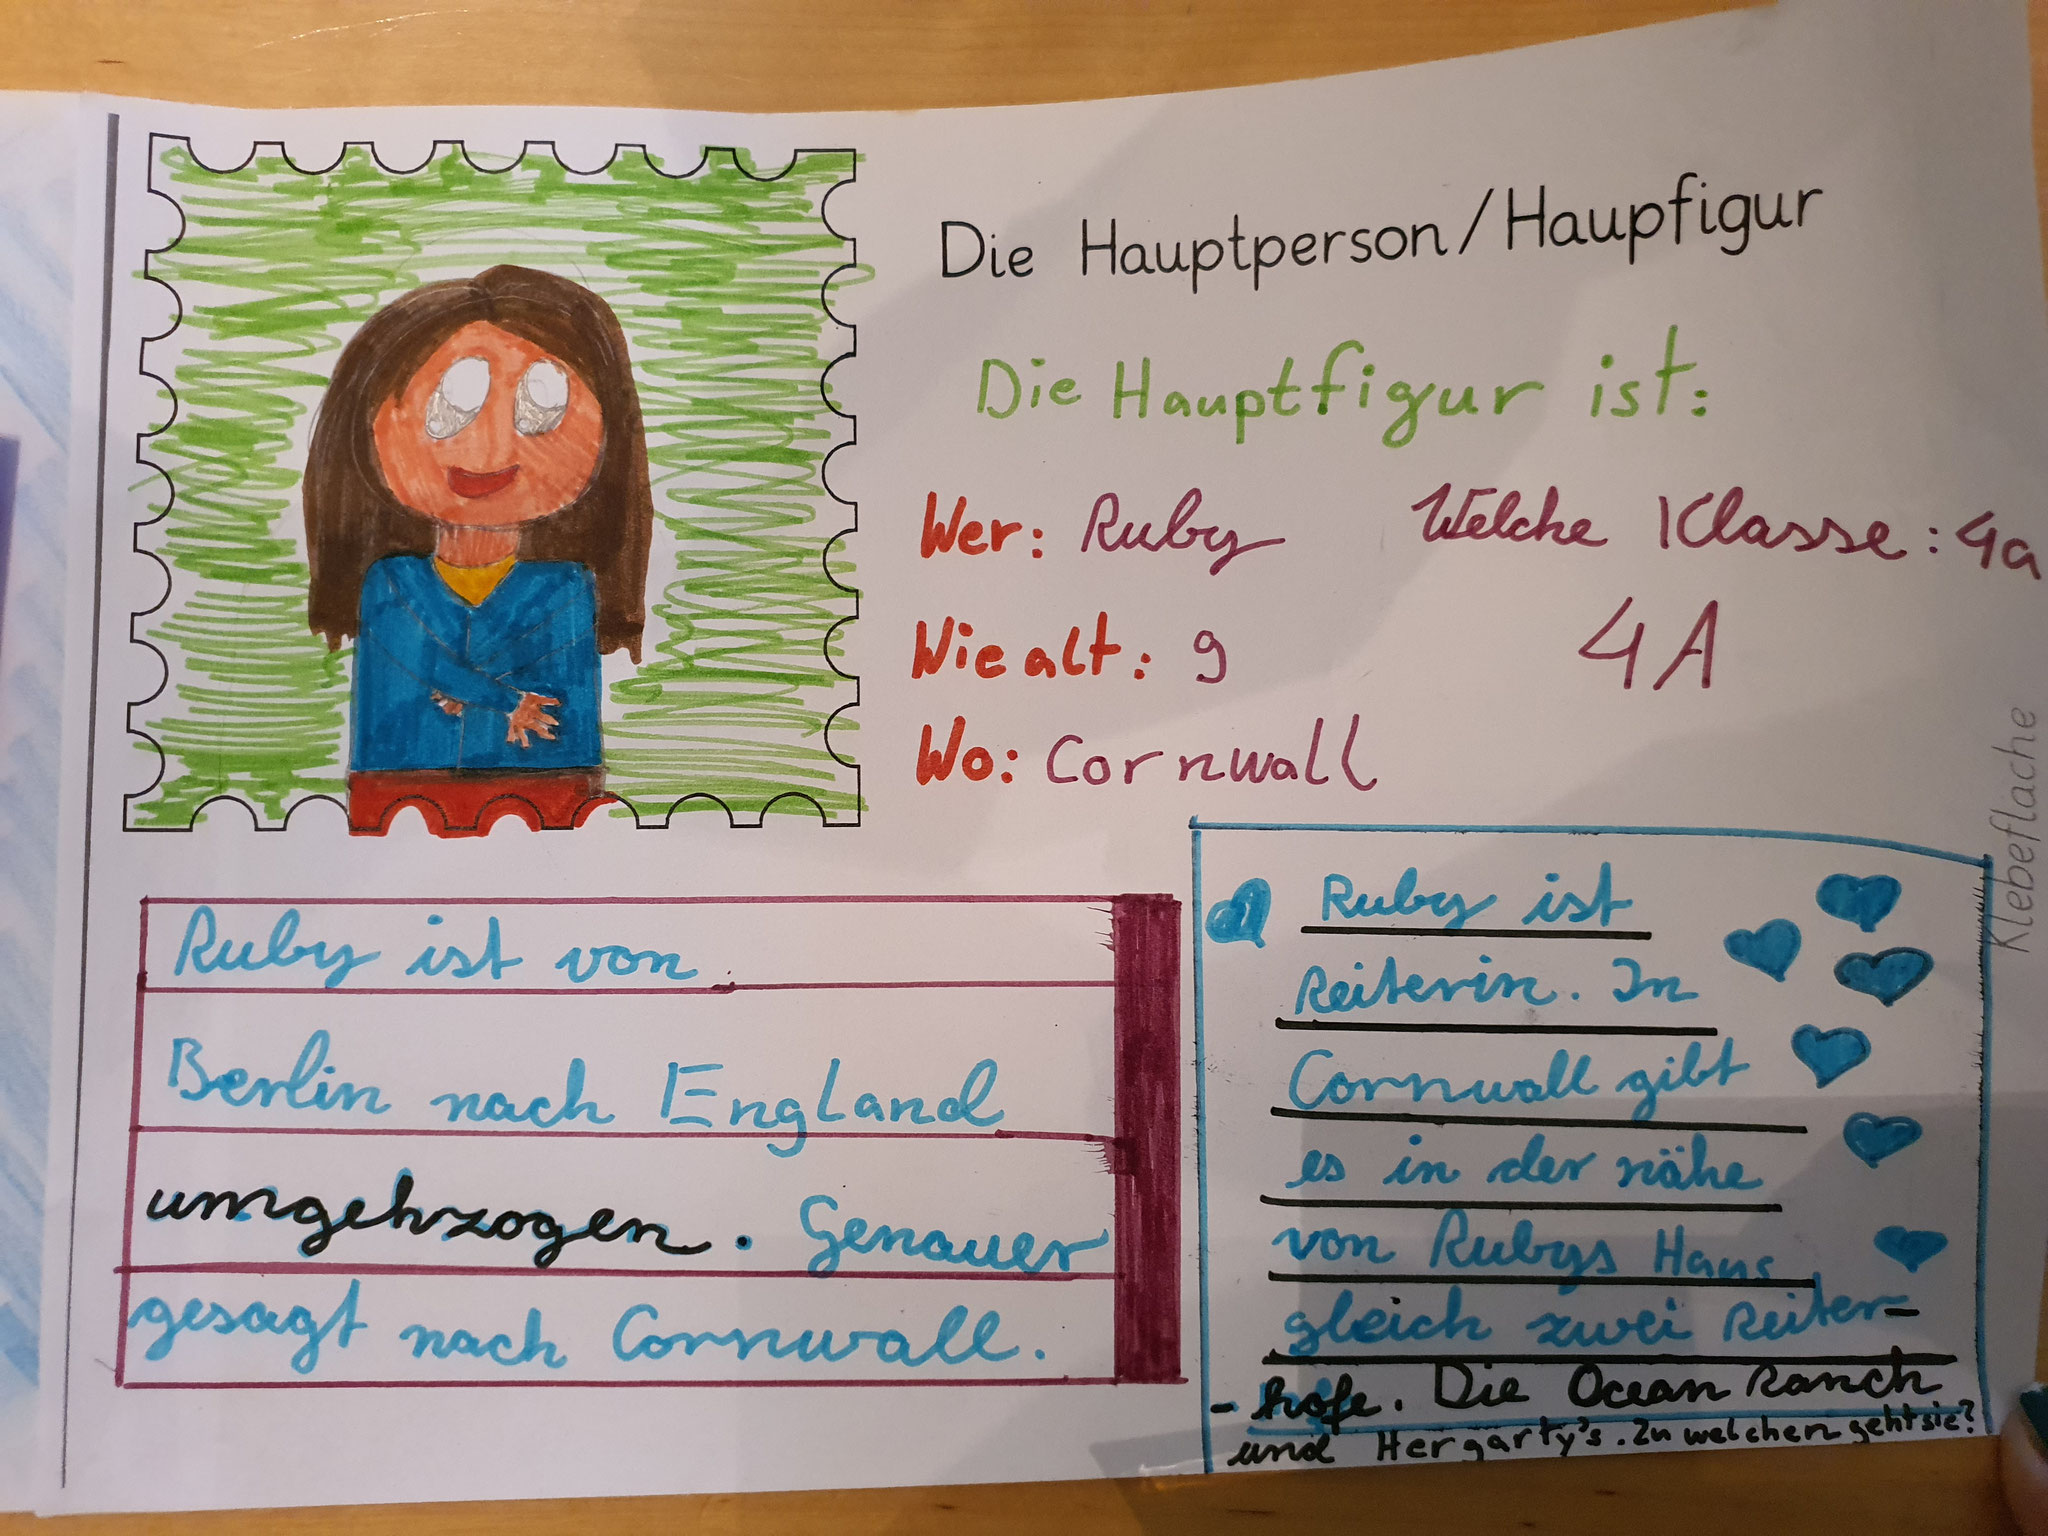 Die Hauptperson/Haupfigur
Die Hauptfigur ist:
Wer: Ruby
Welche Klasse: 4a
4A
Wie alt: 9
Wo: Cornwall
Klebefläche
Ruby ist von
Berlin nach England
umgehzogen. Genauer
gesagt nach Cornwall.
Ruby ist
Reiterin. In
Cornwall gibt
es in der nähe
von Rubys Haus
gleich zwei Reiter-
-höfe. Die Ocean Ranch
und Hergarty's. Zu welchen geht sie?